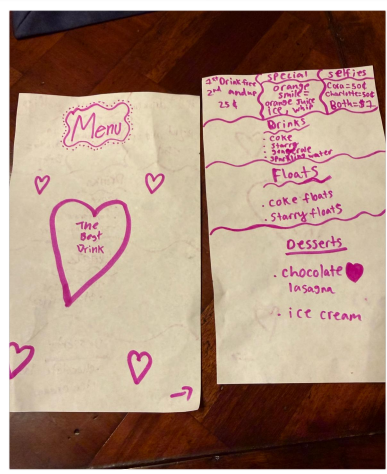 Menu
The
Best
Drink
1st Drink free
2nd and up
25¢
special
orange
smile =
orange juice
ice, whip
selfies
Coco=50¢
Charlotte=50¢
Both=$1
Drinks
• coke
• starry
• gingerale
• sparkling water
Floats
• coke floats
• starry floats
Desserts
• chocolate
lasagna
• ice cream